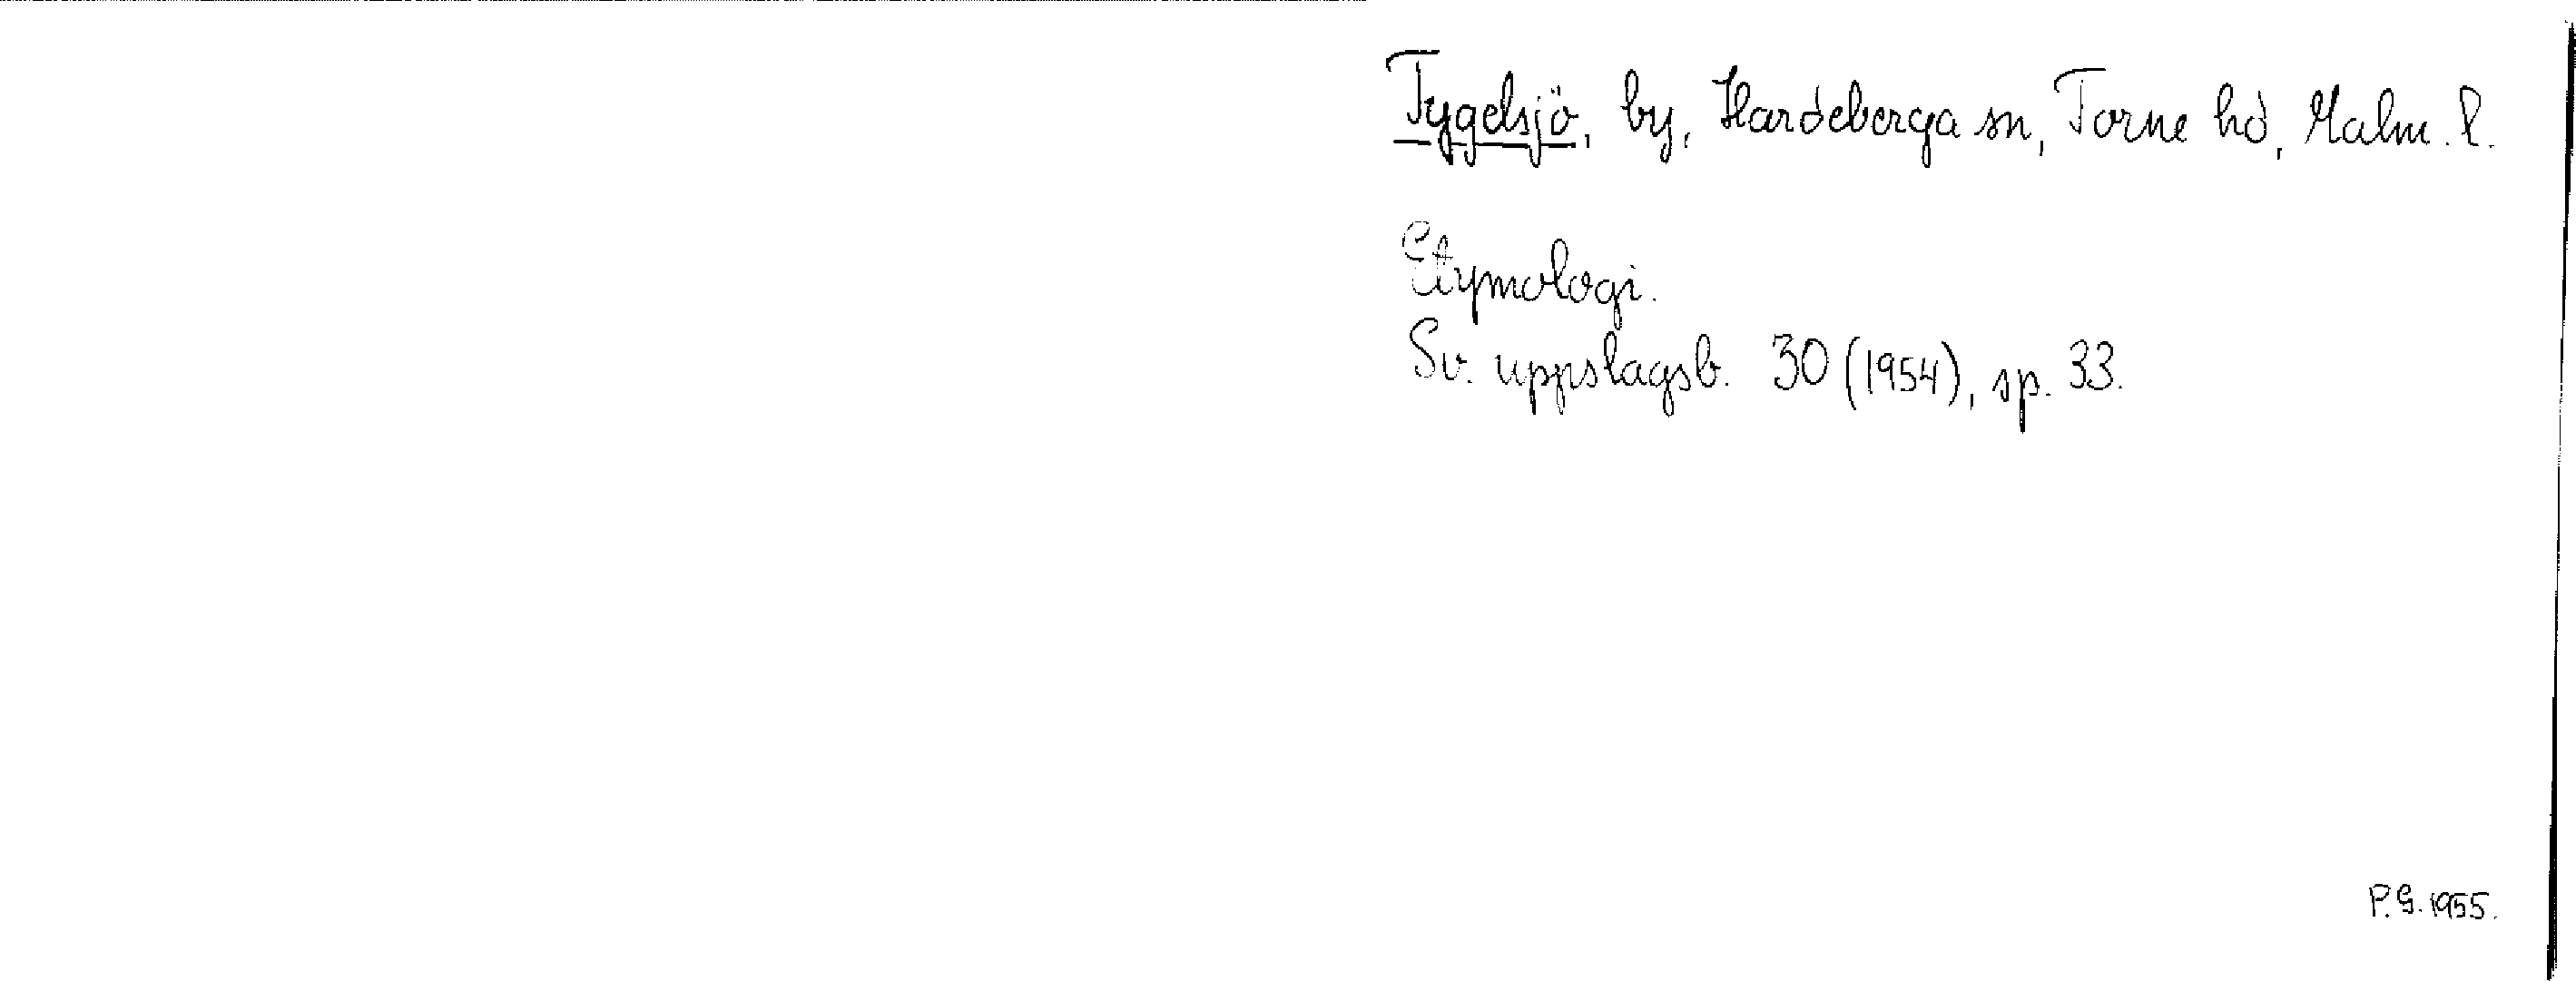 Tygelsjö, by, Hardeberga sn, Torne hd, Malm. l.
Etymologi.
Sv. uppslagsb. 30 (1954), sp. 33.
P.G. 1955.